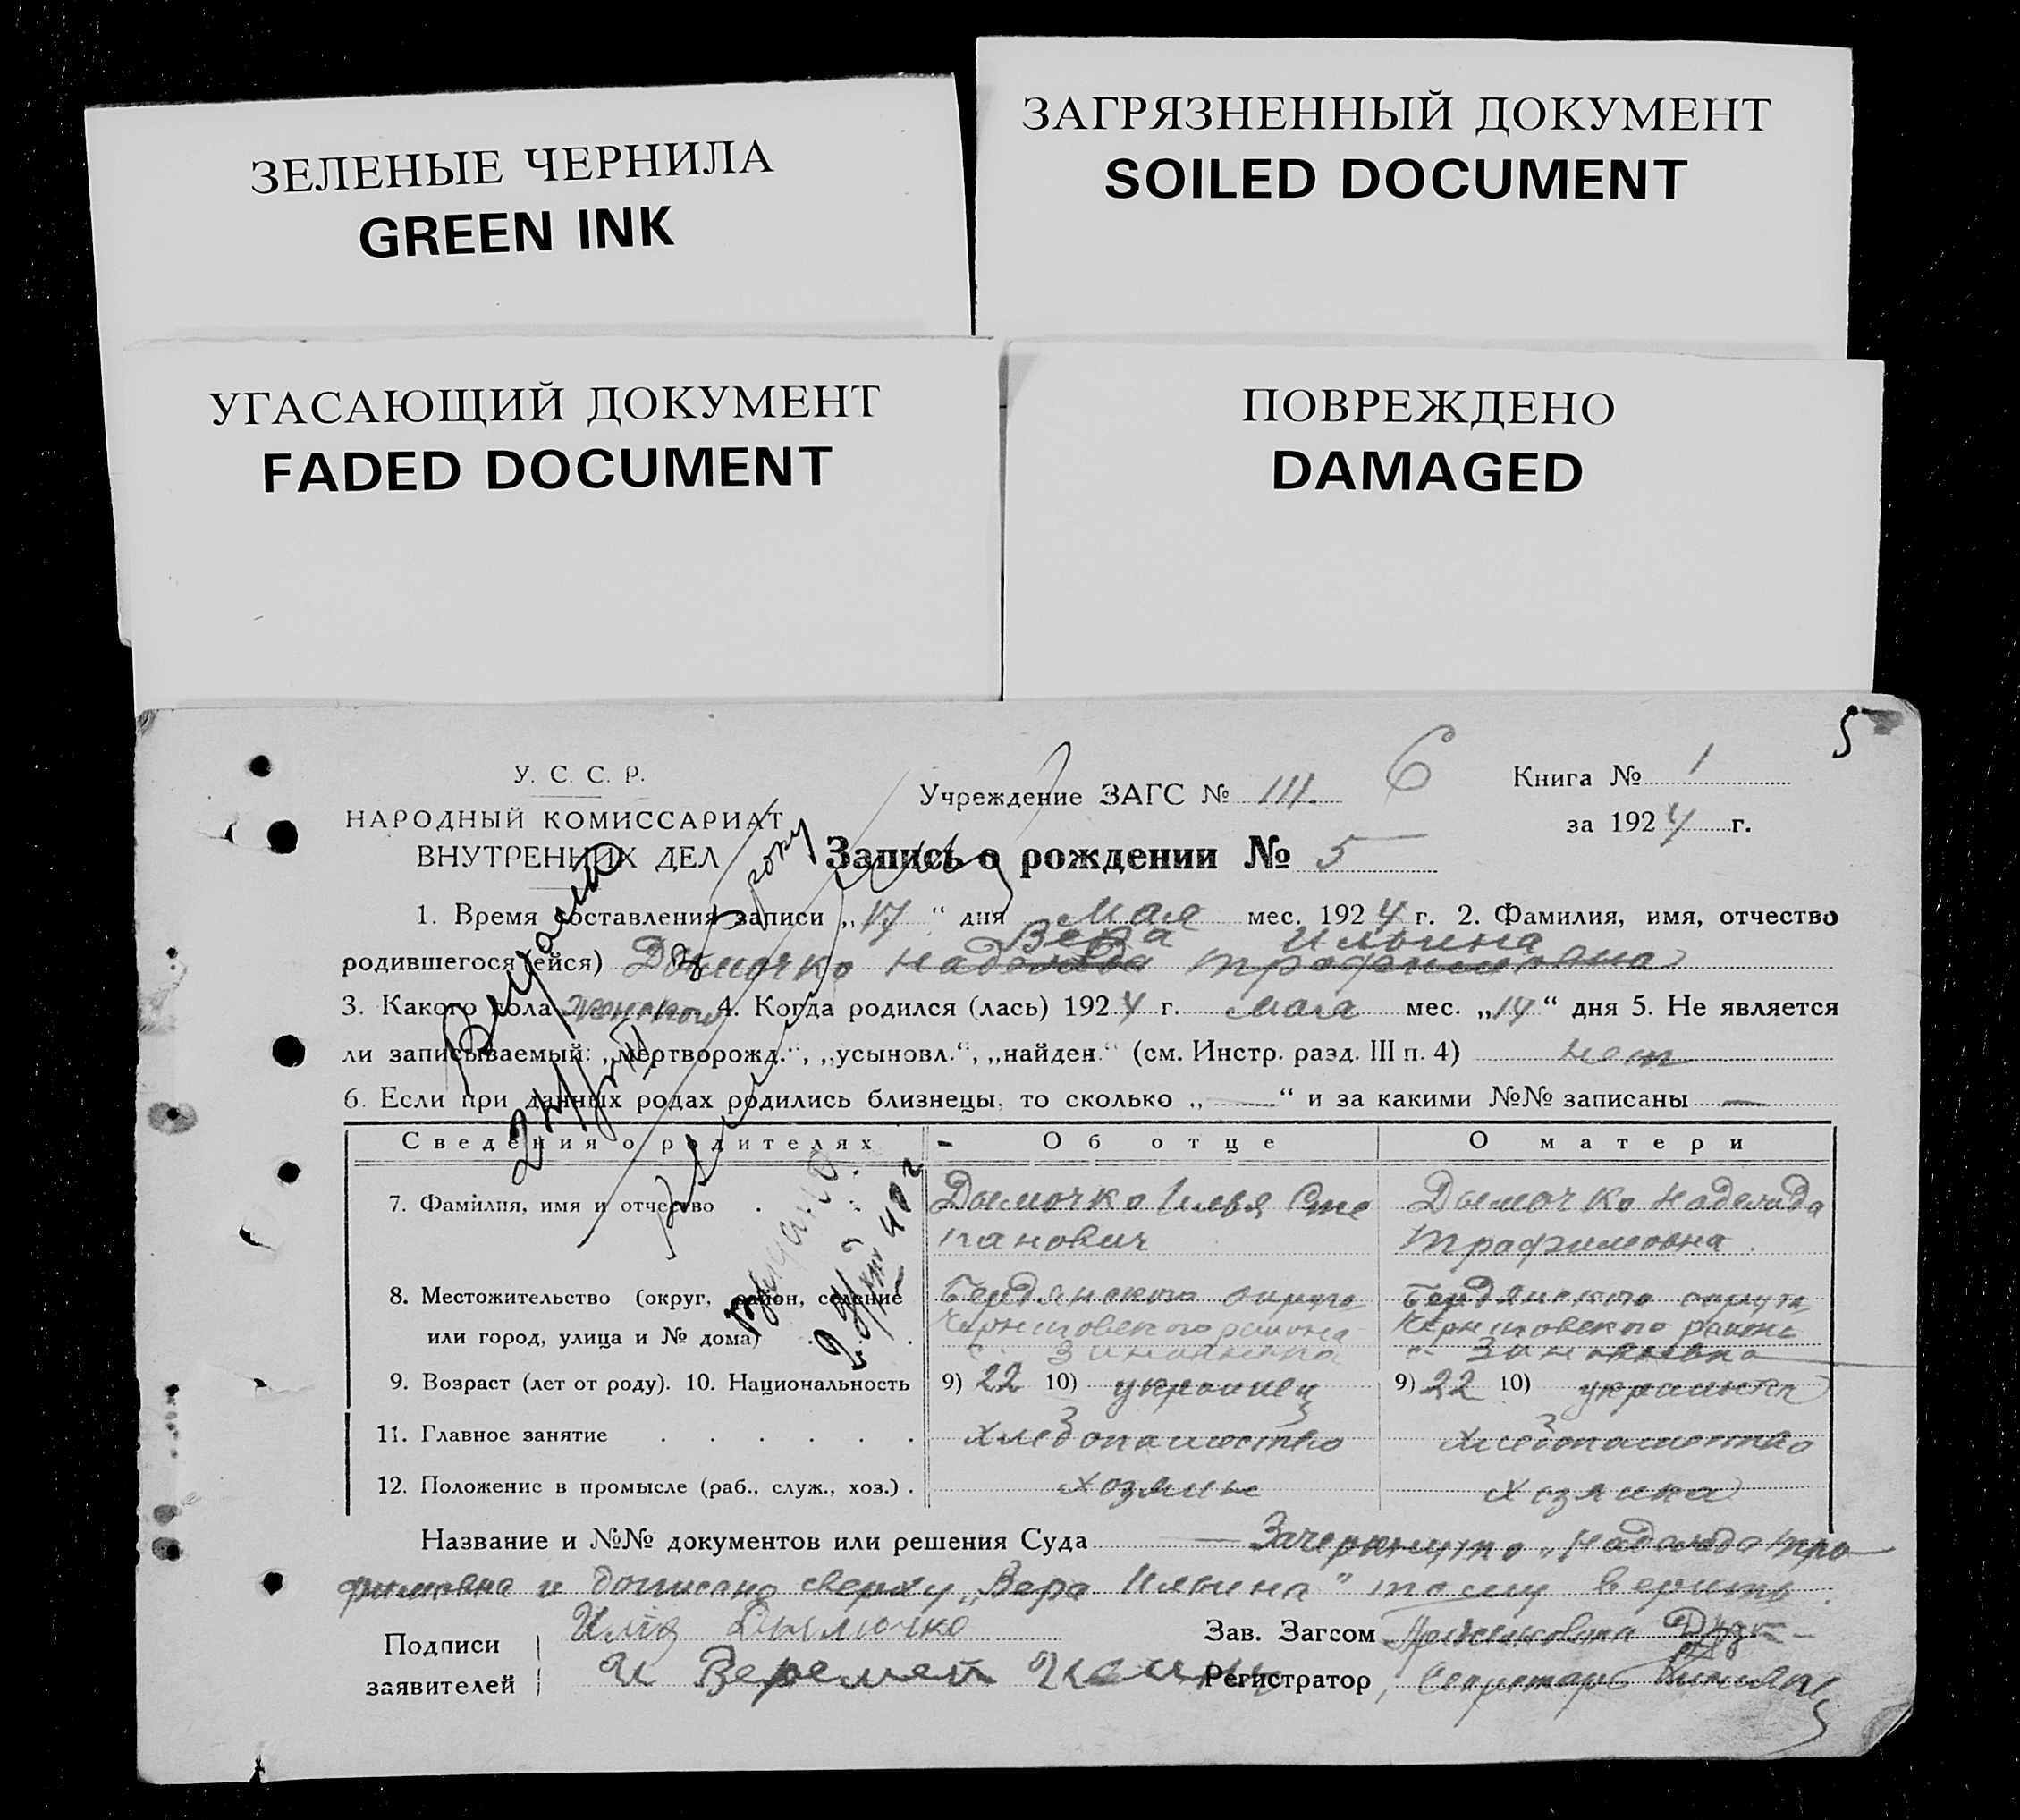 ЗЕЛЕНЫЕ ЧЕРНИЛА
GREEN INK
ЗАГРЯЗНЕННЫЙ ДОКУМЕНТ
SOILED DOCUMENT
УГАСАЮЩИЙ ДОКУМЕНТ
FADED DOCUMENT
ПОВРЕЖДЕНО
DAMAGED
5
У. С. С. Р.
НАРОДНЫЙ КОМИССАРИАТ
ВНУТРЕННИХ ДЕЛ
Учреждение ЗАГС № III.
6
Книга № 1
за 1924 г.
Запись о рождении № 5
1. Время составления записи „17“ дня мая мес. 1924 г. 2. Фамилия, имя, отчество
Вера Ильина
родившегося (ейся) Дымочко
3. Какого пола женского 4. Когда родился (лась) 1924 г. мая мес. „14“ дня 5. Не является
ли записываемый: „мертворожд.“, „усыновл.“, „найден.“ (см. Инстр. разд. III п. 4) нет
6. Если при данных родах родились близнецы, то сколько „—“ и за какими №№ записаны —
Сведения о родителях Об отце О матери
7. Фамилия, имя и отчество Дымочко Илья Сте Дымочко
панович
8. Местожительство (округ, район, селение Бердянского округа Бердянского округа
или город, улица и № дома) Черниговского района Черниговского района
9. Возраст (лет от роду). 10. Национальность 9) 22 10) украинец 9) 22 10) украинка
11. Главное занятие хлебопашество хлебопашество
12. Положение в промысле (раб., служ., хоз.) хозяин хозяика
Название и №№ документов или решения Суда — Зачеркнуто
и дописано сверху „Вера Ильина“ тому верить.
Подписи Дымочко Зав. Загсом
заявителей И Веремей Регистратор Секретарь